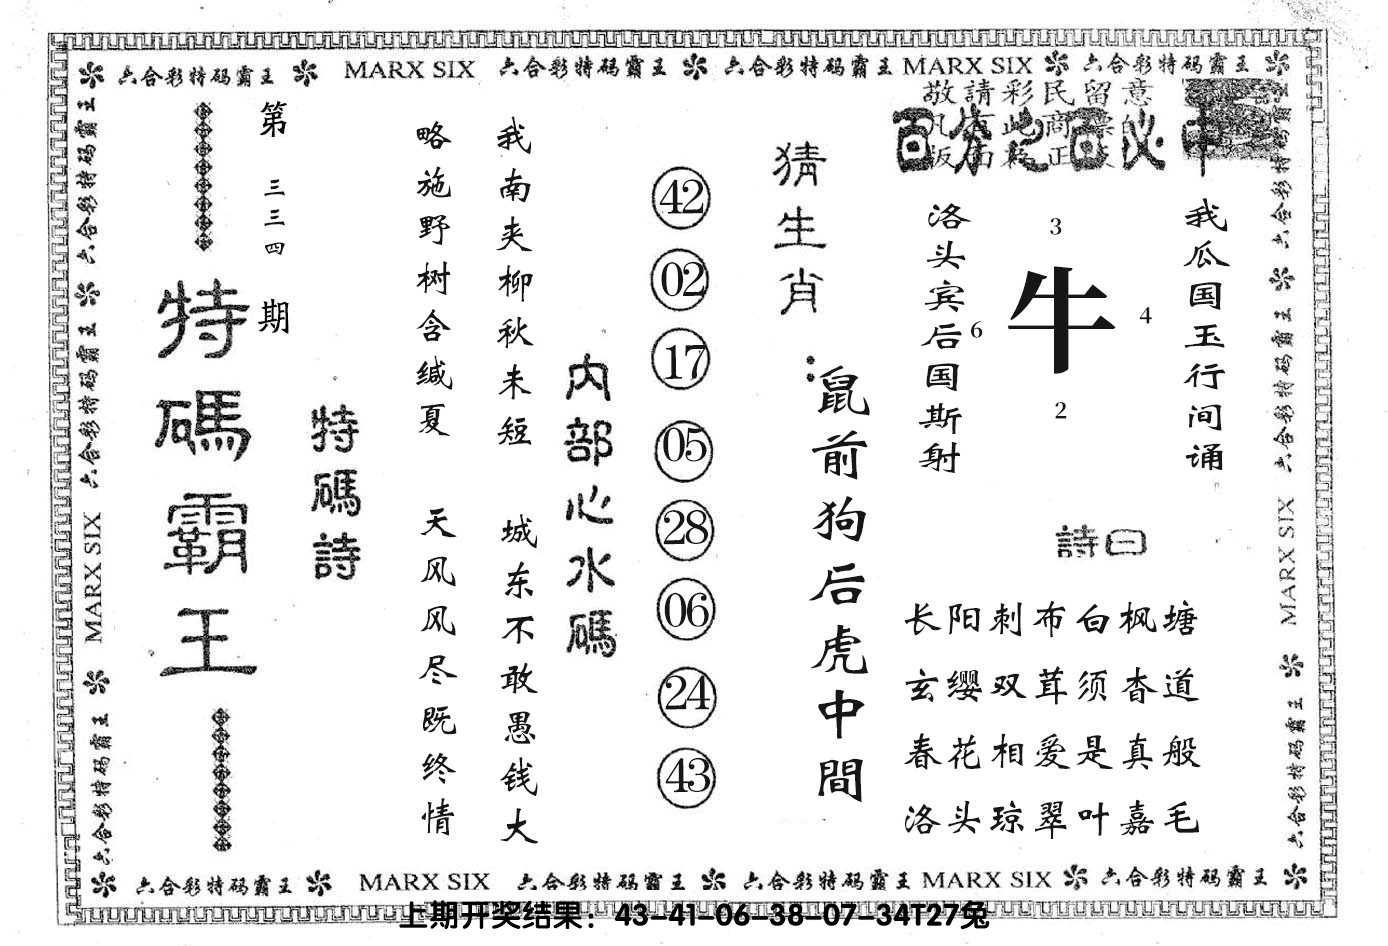 六合彩特码霸王 MARX SIX 六合彩特码霸王 六合彩特码霸王 MARX SIX 六合彩特码霸王
敬請彩民留意
百分之百必中
第三三四期
特碼霸王
特碼詩
略施野树含缄夏
天风风尽既终情
我南夹柳秋未短
城东不敢愚钱大
内部心水碼
42
02
17
05
28
06
24
43
猜生肖：
鼠前狗后虎中間
洛头宾后国斯射
3
6
牛
4
2
我瓜国玉行间诵
詩曰
长阳刺布白枫塘
玄缨双茸须杳道
春花相爱是真般
洛头琼翠叶嘉毛
六合彩特码霸王 六合彩特码霸王 MARX SIX 六合彩特码霸王
六合彩特码霸王 六合彩特码霸王 MARX SIX 六合彩特码霸王
六合彩特码霸王 MARX SIX 六合彩特码霸王 六合彩特码霸王 MARX SIX 六合彩特码霸王
上期开奖结果：43-41-06-38-07-34T27兔